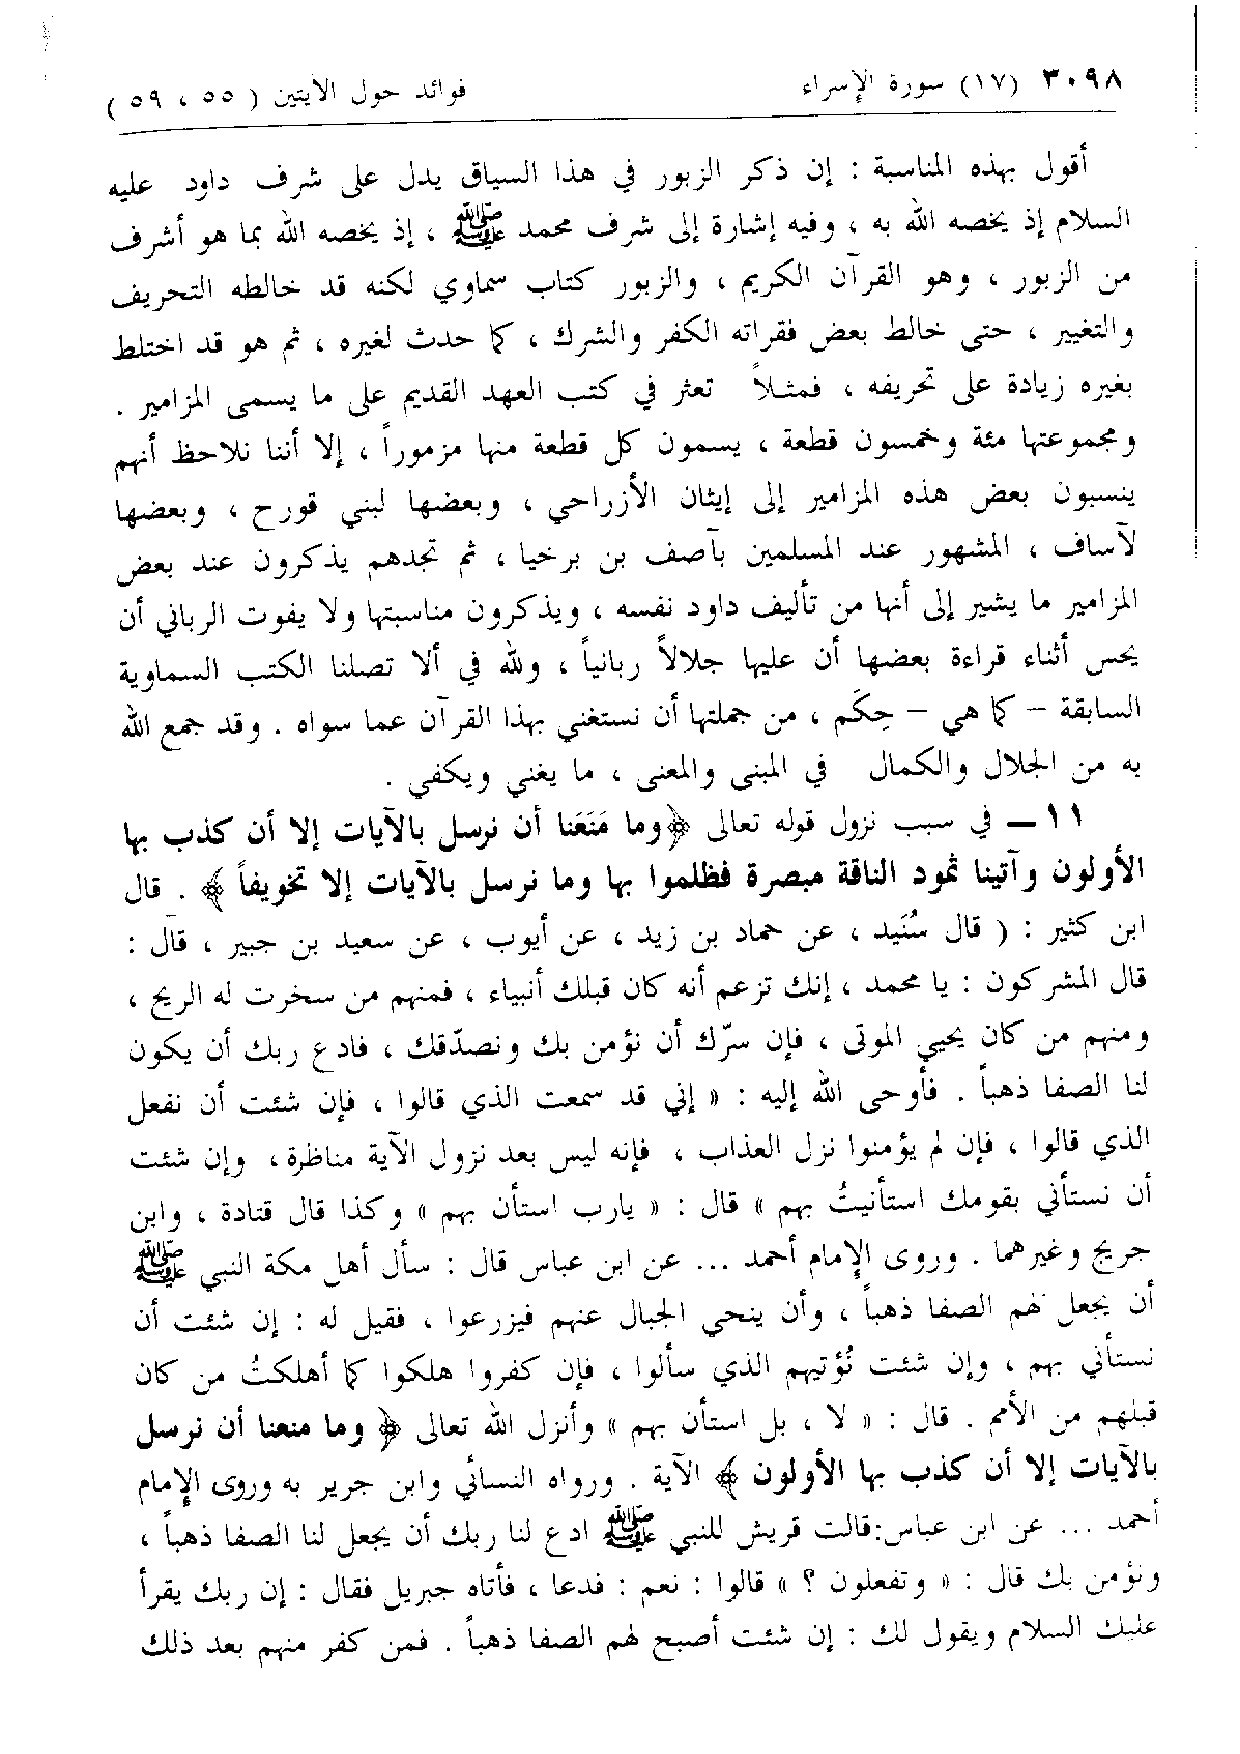 ٣٠٩٨ (١٧) سورة الإسراء فوائد حول الآيتين ( ٥٥ ، ٥٩ )
أقول بهذه المناسبة : إن ذكر الزبور في هذا السياق يدل على شرف داود عليه
السلام إذ يخصه الله به ، وفيه إشارة إلى شرف محمد ﷺ ، إذ يخصه الله بما هو أشرف
من الزبور ، وهو القرآن الكريم ، والزبور كتاب سماوي لكنه قد خالطه التحريف
والتغيير ، حتى خالط بعض فقراته الكفر والشرك ، كما حدث لغيره ، ثم هو قد اختلط
بغيره زيادة على تحريفه ، فمثلاً تعثر في كتب العهد القديم على ما يسمى المزامير .
ومجموعتها مئة وخمسون قطعة ، يسمون كل قطعة منها مزموراً ، إلا أننا نلاحظ أنهم
ينسبون بعض هذه المزامير إلى إيثان الأزراحي ، وبعضها لبني قورح ، وبعضها
لآساف ، المشهور عند المسلمين بآصف بن برخيا ، ثم تجدهم يذكرون عند بعض
المزامير ما يشير إلى أنها من تأليف داود نفسه ، ويذكرون مناسبتها ولا يفوت الرباني أن
يحس أثناء قراءة بعضها أن عليها جلالاً ربانياً ، ولله في ألا تصلنا الكتب السماوية
السابقة - كما هي - حِكَم ، من جملتها أن نستغني بهذا القرآن عما سواه . وقد جمع الله
به من الجلال والكمال في المبنى والمعنى ، ما يغني ويكفي .
١١ – في سبب نزول قوله تعالى ﴿وما مَنَعَنا أن نرسل بالآيات إلا أن كذب بها
الأولون وآتينا ثمود الناقة مبصرة فظلموا بها وما نرسل بالآيات إلا تخويفاً ﴾ . قال
ابن كثير : ( قال سُنَيد ، عن حماد بن زيد ، عن أيوب ، عن سعيد بن جبير ، قال :
قال المشركون : يا محمد ، إنك تزعم أنه كان قبلك أنبياء ، فمنهم من سخرت له الريح ،
ومنهم من كان يحيي الموتى ، فإن سرّك أن نؤمن بك ونصدّقك ، فادع ربك أن يكون
لنا الصفا ذهباً . فأوحى الله إليه : « إني قد سمعت الذي قالوا ، فإن شئت أن نفعل
الذي قالوا ، فإن لم يؤمنوا نزل العذاب ، فإنه ليس بعد نزول الآية مناظرة ، وإن شئت
أن نستأني بقومك استأنيتُ بهم » قال : « يارب استأن بهم » وكذا قال قتادة ، وابن
جريج وغيرهما . وروى الإمام أحمد ... عن ابن عباس قال : سأل أهل مكة النبي ﷺ
أن يجعل لهم الصفا ذهباً ، وأن ينحي الجبال عنهم فيزرعوا ، فقيل له : إن شئت أن
نستأني بهم ، وإن شئت نُؤتيهم الذي سألوا ، فإن كفروا هلكوا كما أهلكتُ من كان
قبلهم من الأمم . قال : « لا ، بل استأن بهم » وأنزل الله تعالى ﴿ وما منعنا أن نرسل
بالآيات إلا أن كذب بها الأولون ﴾ الآية . ورواه النسائي وابن جرير به وروى الإمام
أحمد ... عن ابن عباس:قالت قريش للنبي ﷺ ادع لنا ربك أن يجعل لنا الصفا ذهباً ،
ونؤمن بك قال : « وتفعلون ؟ » قالوا : نعم : فدعا ، فأتاه جبريل فقال : إن ربك يقرأ
عليك السلام ويقول لك : إن شئت أصبح لهم الصفا ذهباً . فمن كفر منهم بعد ذلك